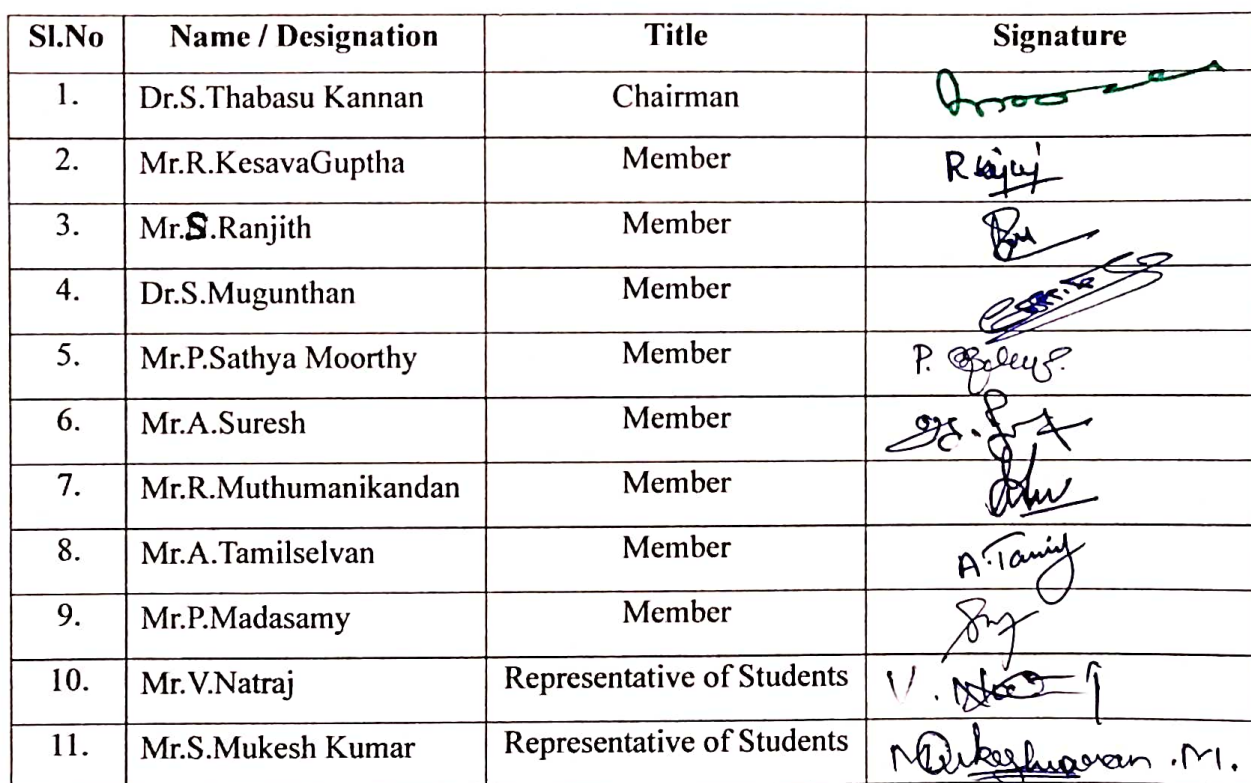 Sl.No Name / Designation Title Signature
1. Dr.S.Thabasu Kannan Chairman
2. Mr.R.KesavaGuptha Member
3. Mr.S.Ranjith Member
4. Dr.S.Mugunthan Member
5. Mr.P.Sathya Moorthy Member P.
6. Mr.A.Suresh Member
7. Mr.R.Muthumanikandan Member
8. Mr.A.Tamilselvan Member
9. Mr.P.Madasamy Member
10. Mr.V.Natraj Representative of Students V.
11. Mr.S.Mukesh Kumar Representative of Students